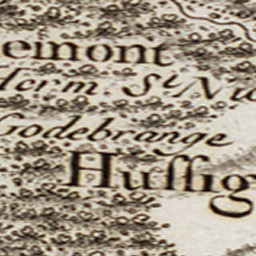 emont
derm. St Nic
Godebrange
Hussig